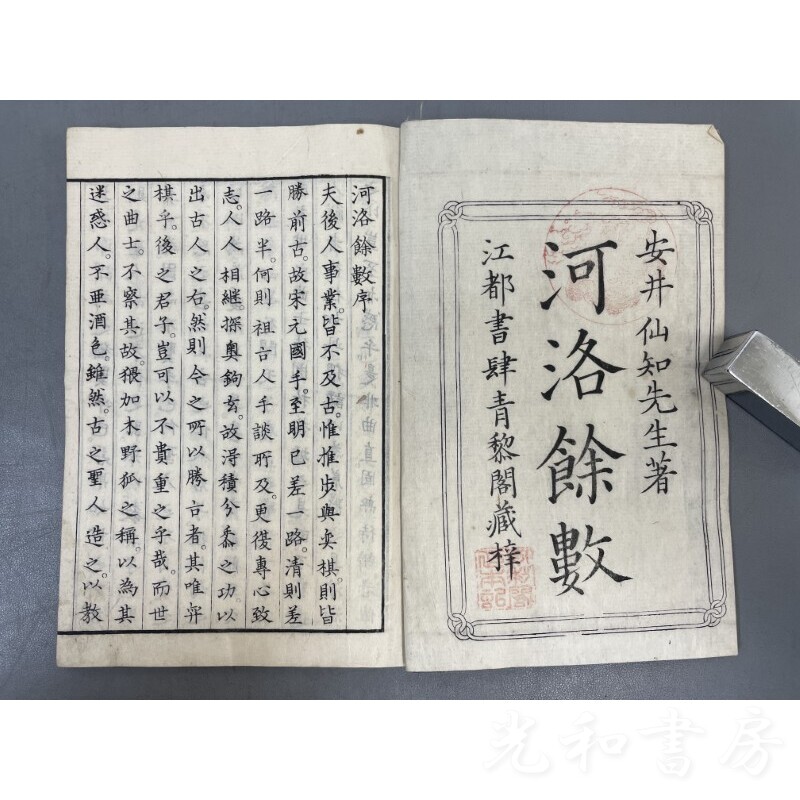 安井仙知先生著
河洛餘數
江都書肆青黎閣藏梓
河洛餘數序
夫後人事業。皆不及古。惟推步與奕棋。則皆
勝前古。故宋元國手。至明已差一路。清則差
一路半。何則祖古人手談所及。更復專心致
志。人人相繼。探奧鉤玄。故得積兮黍之功。以
出古人之右。然則今之所以勝古者。其唯弈
棋乎。後之君子。豈可以不貴重之乎哉。而世
之曲士。不察其故。猥加木野狐之稱。以為其
迷惑人。不亜酒色。雖然。古之聖人造之。以教
光和書房